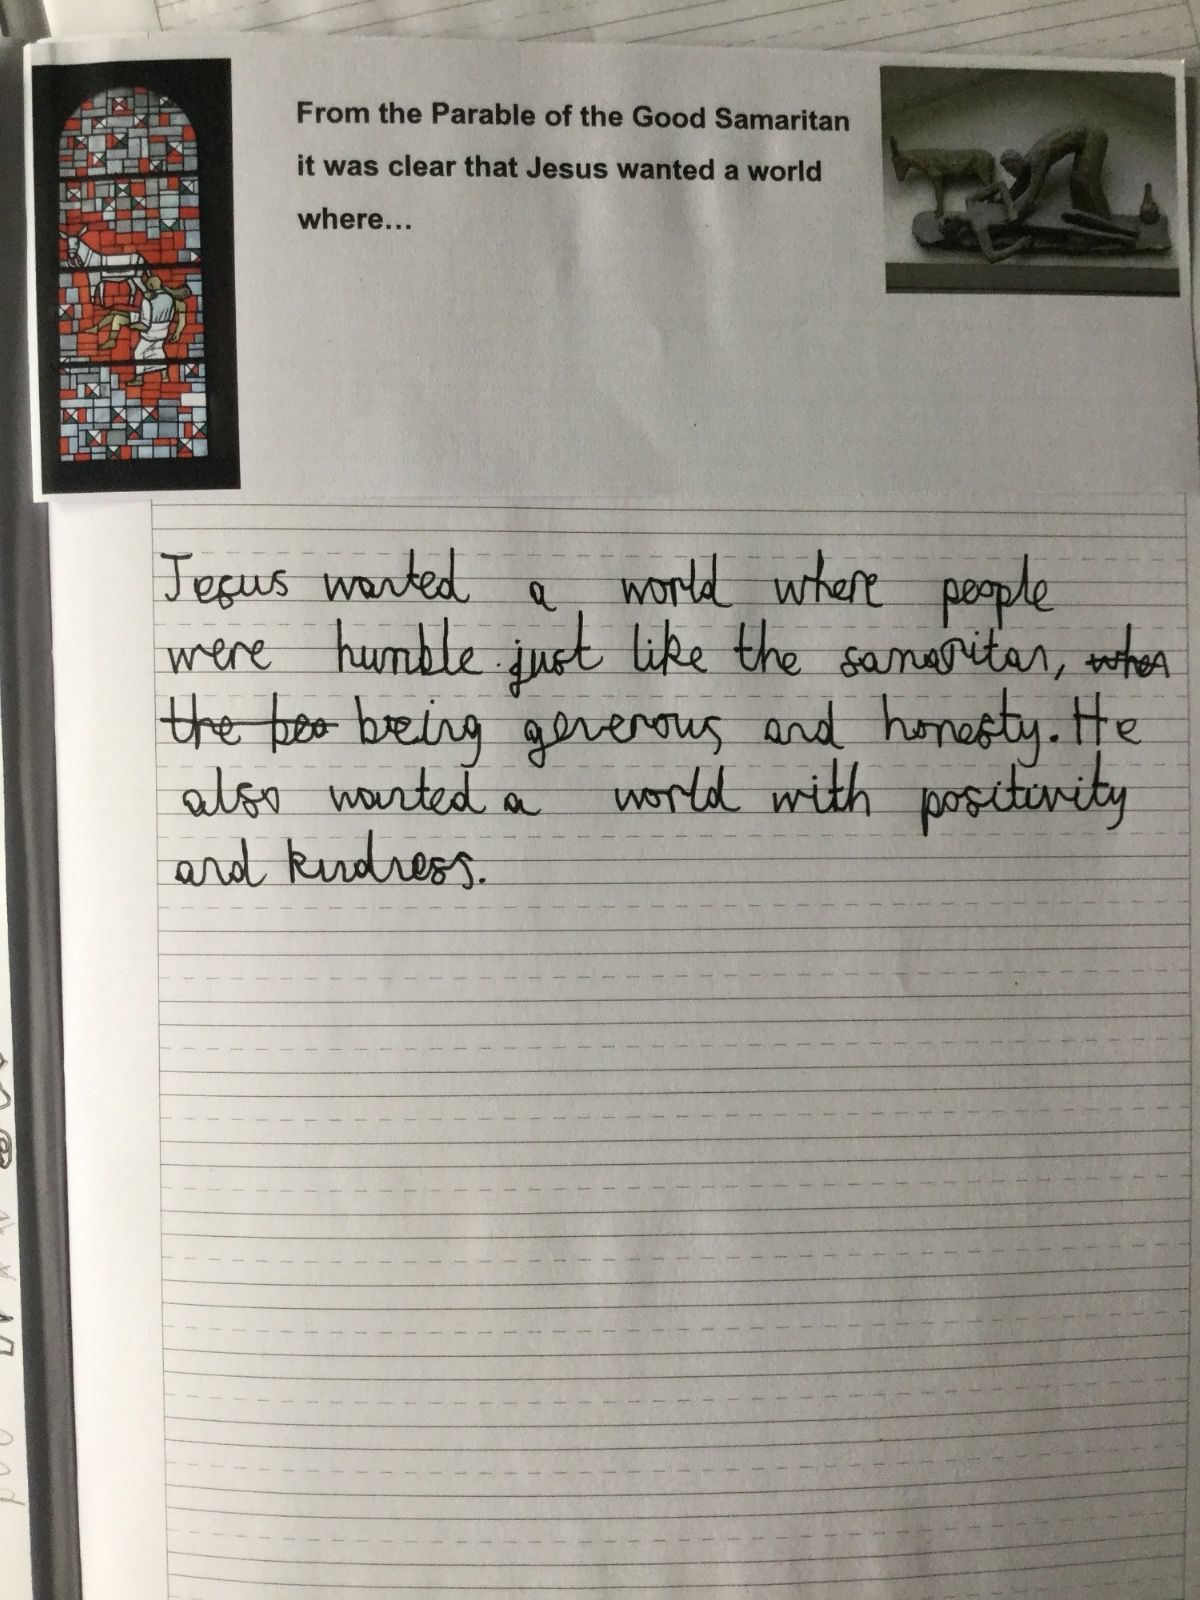 From the Parable of the Good Samaritan
it was clear that Jesus wanted a world
where...
Jesus wanted a world where people
were humble just like the samaritan, when
the boo being generous and honesty. He
also wanted a world with positivity
and kindness.